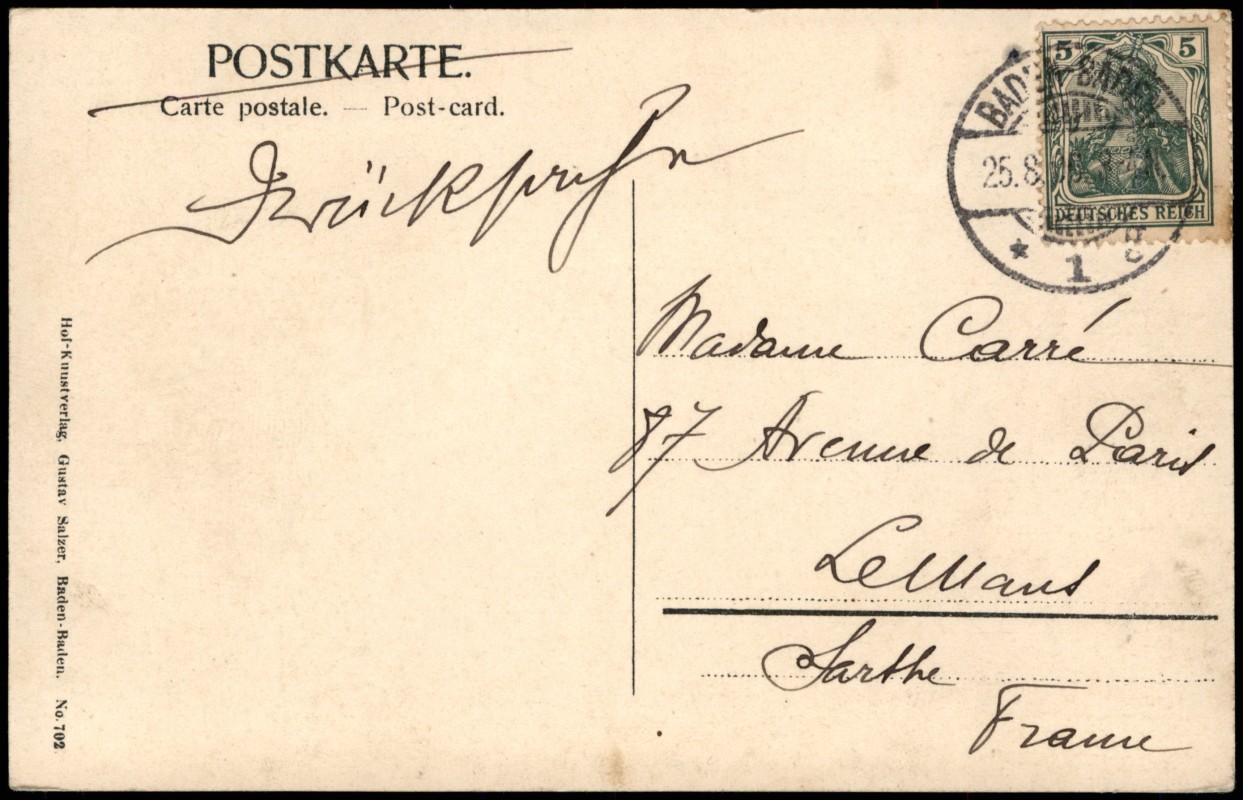 POSTKARTE.
Carte postale. — Post-card.
Drucksache
BADEN-BADEN
25.8
* 1 g
5 5
DEUTSCHES REICH
Madame Carré
87 Avenue de Paris
Le Mans
Sarthe
France
Hof-Kunstverlag, Gustav Salzer, Baden-Baden. No. 702